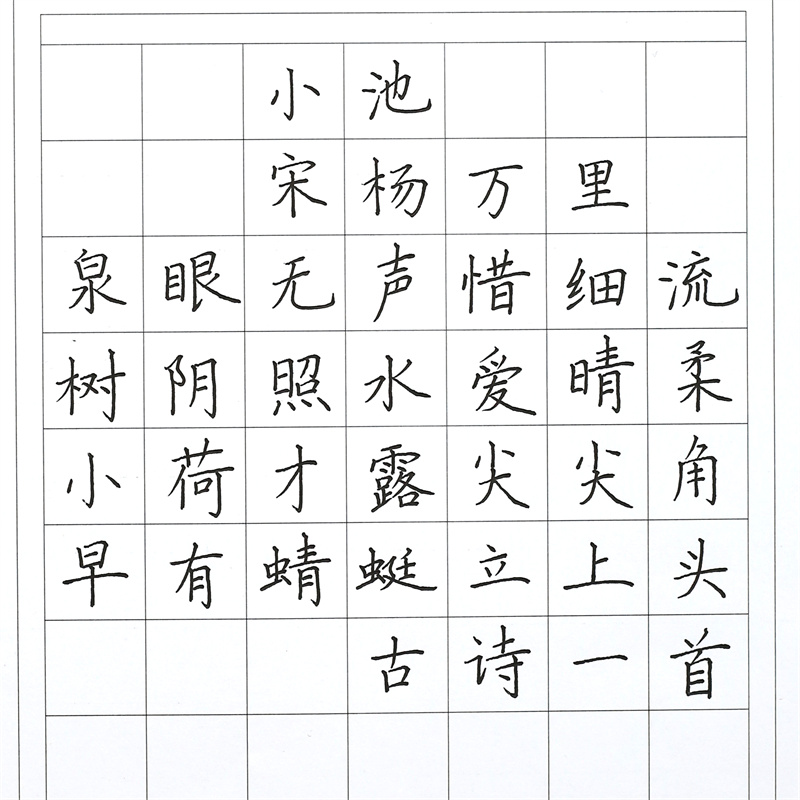 小池
宋杨万里
泉眼无声惜细流
树阴照水爱晴柔
小荷才露尖尖角
早有蜻蜓立上头
古诗一首